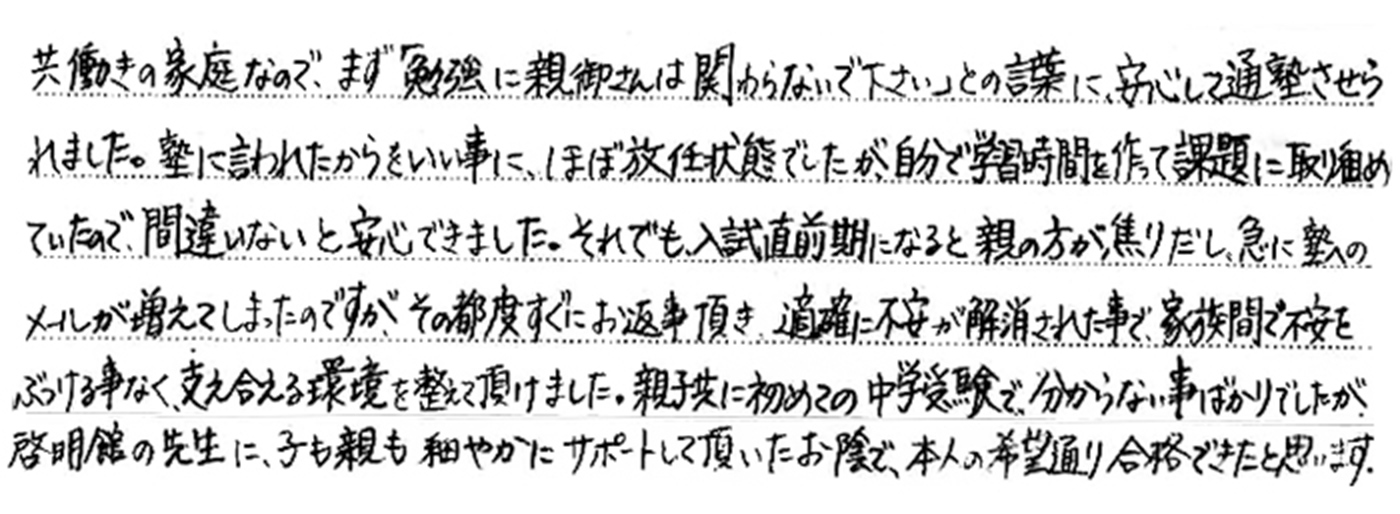 共働きの家庭なので、まず「勉強に親御さんは関わらないで下さい」との言葉に、安心して通塾させら
れました。塾に言われたからをいい事に、ほぼ放任状態でしたが、自分で学習時間を作って課題に取り組め
ていたので、間違いないと安心できました。それでも、入試直前期になると親の方が焦りだし、急に塾への
メールが増えてしまったのですが、その都度すぐにお返事頂き、適確に不安が解消された事で、家族間で不安を
ぶつける事なく、支え合える環境を整えて頂けました。親子共に初めての中学受験で、分からない事ばかりでしたが、
啓明館の先生に、子も親も細やかにサポートして頂いたお陰で、本人の希望通り合格できたと思います。